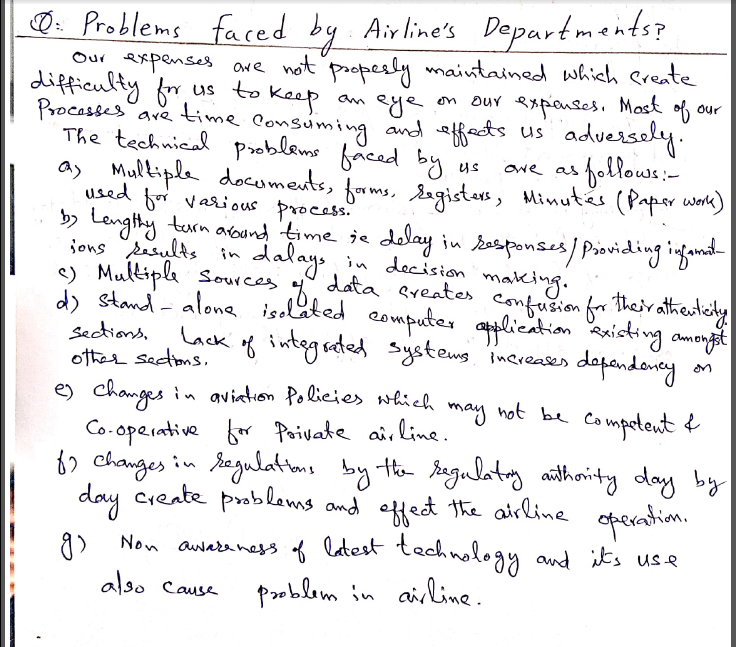 Q: Problems faced by Airline's Departments?
Our expenses are not properly maintained which create
difficulty for us to keep an eye on our expenses. Most of our
Processes are time consuming and effects us adversely.
The technical problems faced by us are as follows:-
a) Multiple documents, forms, registers, Minutes (Paper work)
used for various process.
b) Lengthy turn around time ie delay in responses/Providing informat-
ions results in dalays in decision making.
c) Multiple sources of data creates confusion for their athenticity.
d) Stand-alone isolated computer application existing amongst
sections. Lack of integrated systems increases dependency on
other sections.
e) Changes in aviation Policies which may not be competent &
Co-operative for Private airline.
f) Changes in regulations by the regulatory authority day by
day create problems and effect the airline operation.
g) Non awareness of latest technology and its use
also cause problem in airline.